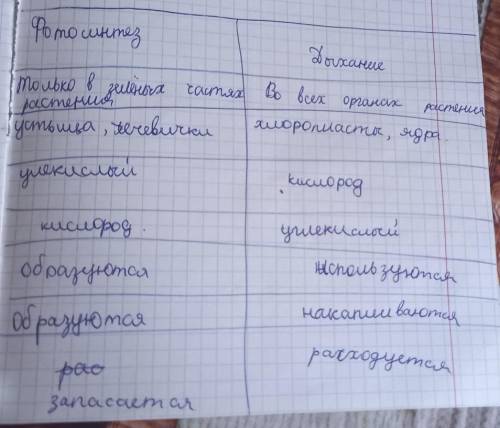 Фотосинтез
Дыхание
Только в зелёных частях растения
Во всех органах растения
устьица, чечевички
хлоропласты, ядра.
улекислый
кислород
кислород.
углекислый
образуются
используются
образуются
накапливаются
рас
запасается
расходуется